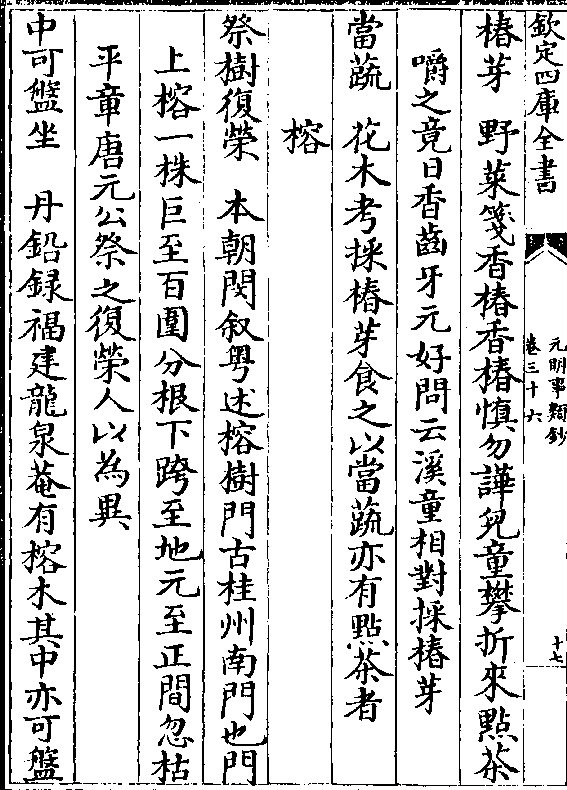 欽定四庫全書
元明事類鈔
卷三十六
十七
椿芽　野菜箋香椿香椿慎勿譁兒童攀折來點茶
嚼之竟日香齒牙元好問云溪童相對採椿芽
當蔬　花木考採椿芽食之以當蔬亦有點茶者
榕
祭樹復榮　本朝閔叙粤述榕樹門古桂州南門也門
上榕一株巨至百圍分根下跨至地元至正間忽枯
平章唐元公祭之復榮人以為異
中可盤坐　丹鉛録福建龍泉菴有榕木其中亦可盤